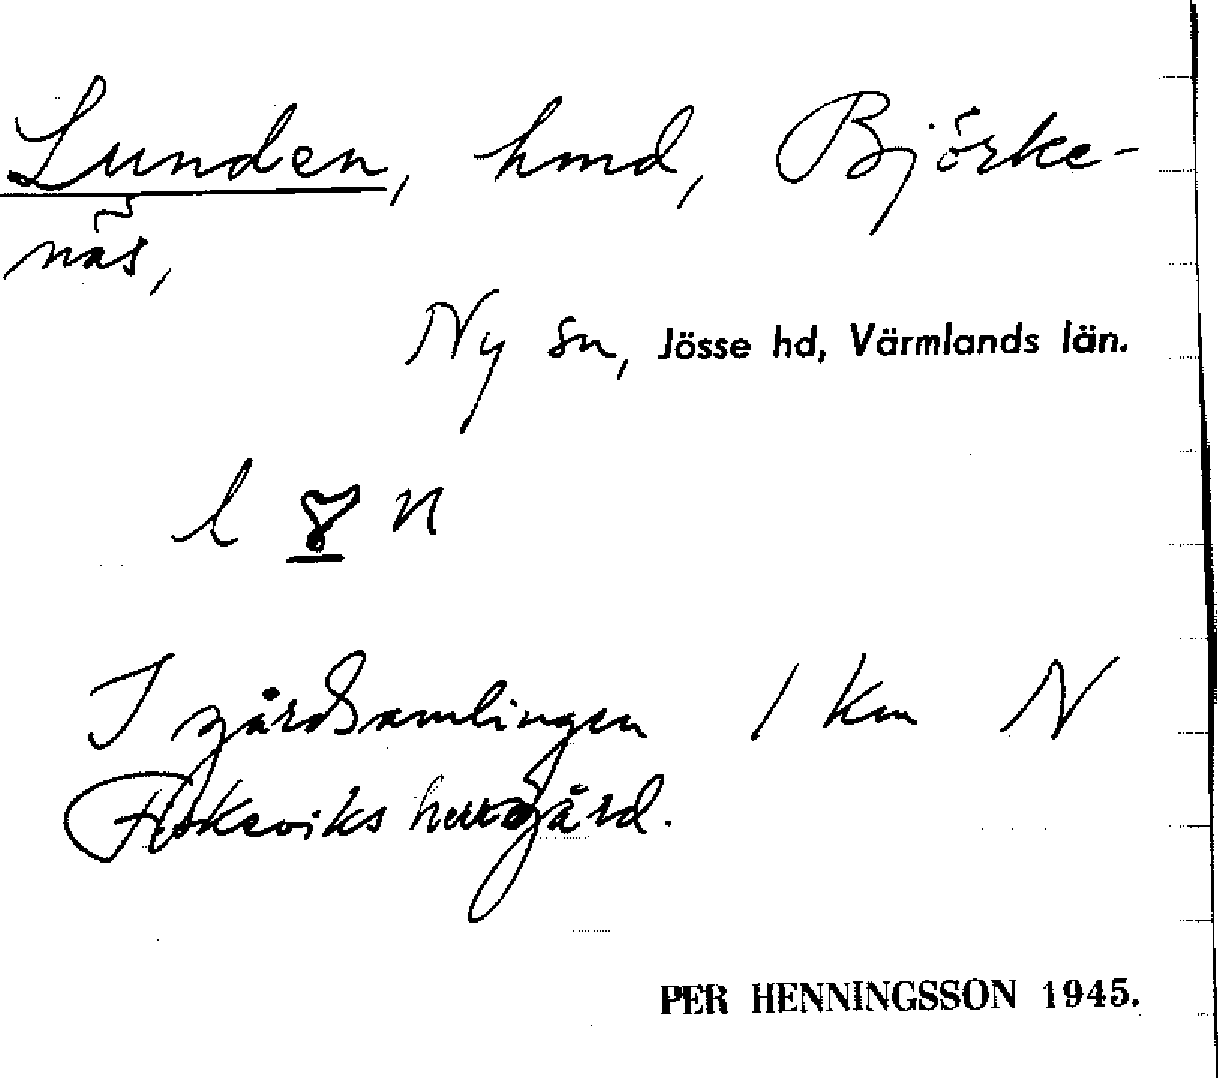 Lunden, hmd, Björke-
näs,
Ny sn, Jösse hd, Värmlands län.
l 8 n
I gårdsamlingen 1 km N
herrgård.
PER HENNINGSSON 1945.